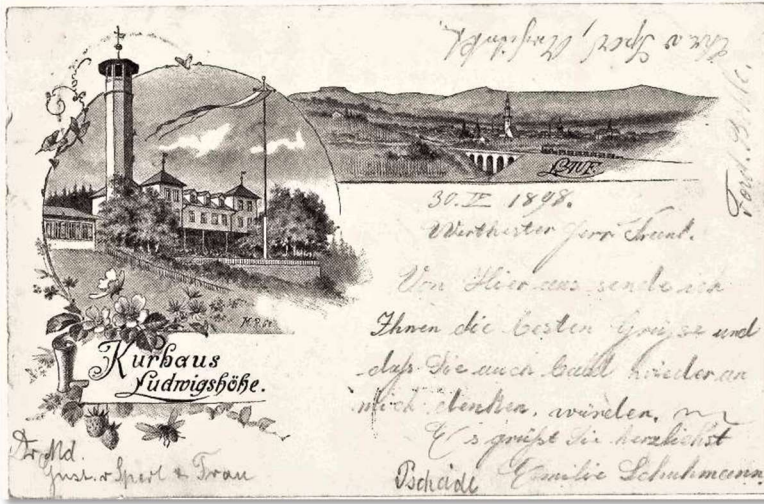 LAUF.
30. IV 1898.
Werthester Herr Freund.
Von Hier aus sende ich
Ihnen die besten Grüsse und
daß Sie auch bald wieder an
mich denken, würden.
Es grüßt Sie herzlichst
Emilie Schuhmann
Kurhaus
Ludwigshöhe.
Gust. v Sperl & Frau